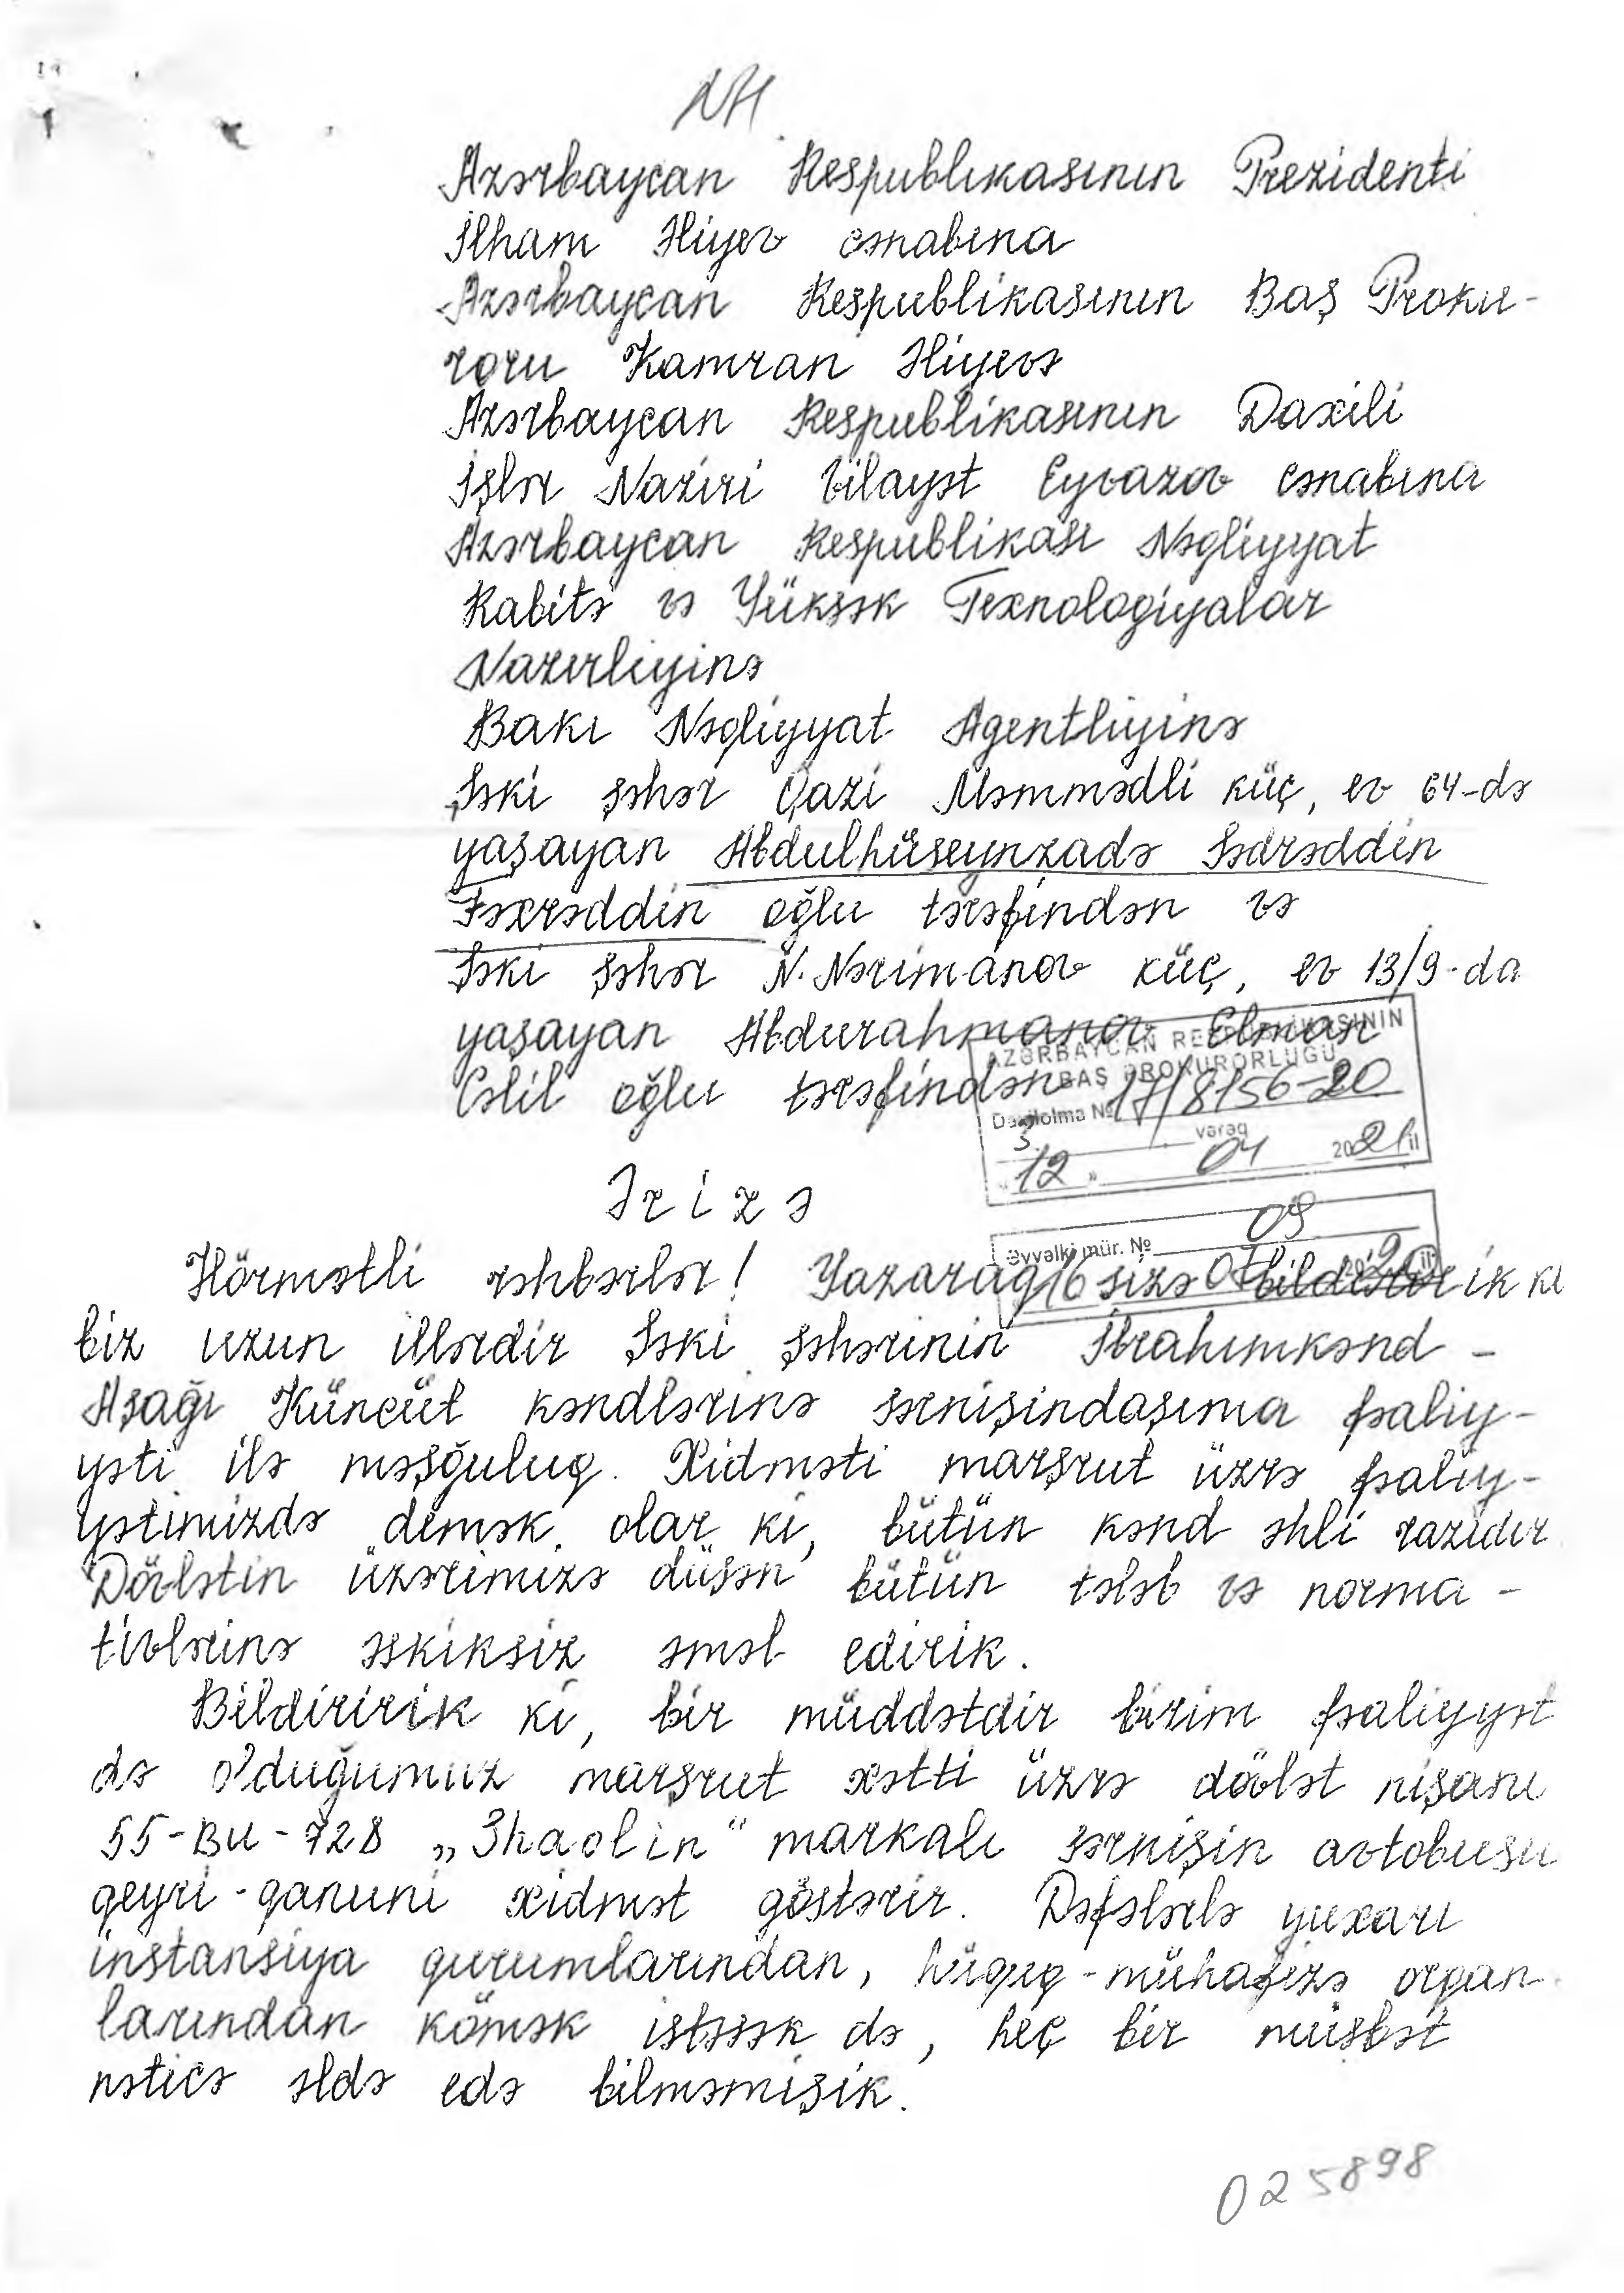 Azərbaycan Respublikasının Prezidenti
İlham Əliyev cənabına
Azərbaycan Respublikasının Baş Proku-
roru Kamran Əliyevə
Azərbaycan Respublikasının Daxili
İşlər Naziri Vilayət Eyvazov cənabına
Azərbaycan Respublikası Nəqliyyat
Rabitə və Yüksək Texnologiyalar
Nazirliyinə
Bakı Nəqliyyat Agentliyinə
Şəki şəhər Qazi Məmmədli küç, ev 64-də
yaşayan Abdulhüseynzadə Sədrəddin
Fəxrəddin oğlu tərəfindən və
Şəki şəhər N. Nərimanov küç, ev 13/9-da
yaşayan Abdurahmanov Elman
Cəlil oğlu tərəfindən
AZƏRBAYCAN RESPUBLİKASININ
BAŞ PROKURORLUĞU
Daxilolma № 17/8156-20
vərəq
"12" 04 2021 il
Ərizə
Əvvəlki mür. № 09
Hörmətli rəhbərlər! Yazaraq sizə bildiririk ki
biz uzun illərdir Şəki şəhərinin İbrahimkənd -
Aşağı Küncüt kəndlərinə sərnişindaşıma fəaliy-
yəti ilə məşğuluq. Xidməti marşrut üzrə fəaliy-
yətimizdə demək olar ki, bütün kənd əhli razıdır
Dövlətin üzərimizə düşən bütün tələb və norma-
tivlərinə əskiksiz əməl edirik.
Bildiririk ki, bir müddətdir bizim fəaliyyət
də olduğumuz marşrut xətti üzrə dövlət nişanı
55-BU-728 „Shaolin" markalı sərnişin avtobusu
qeyri-qanuni xidmət göstərir. Dəfələrlə yuxarı
instansiya qurumlarından, hüquq-mühafizə orqan
larından kömək istəsək də, heç bir müsbət
nəticə əldə edə bilməmişik.
025898